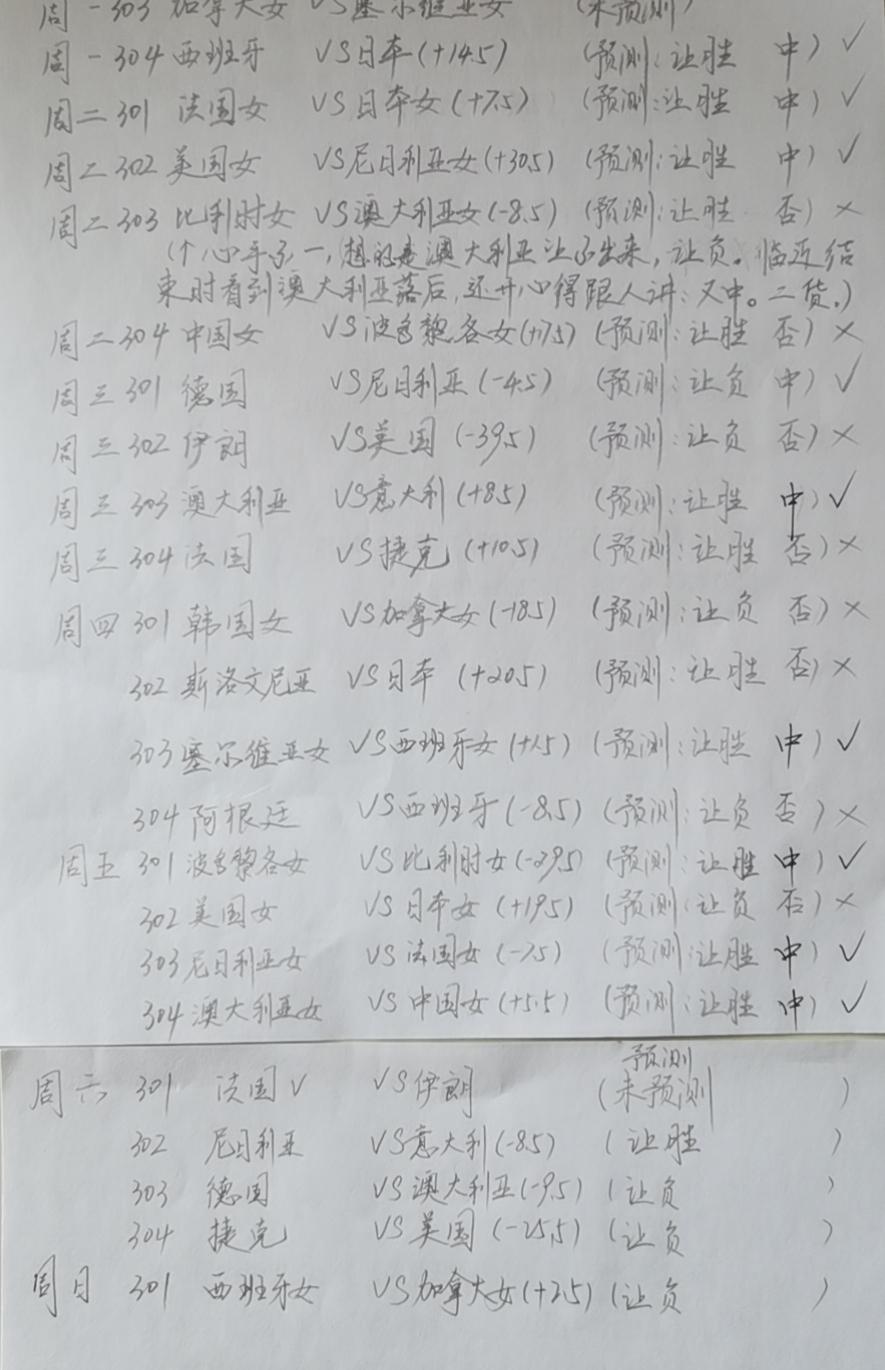 周一303 加拿大女 VS塞尔维亚女 (未预测)
周一304 西班牙 VS日本(+14.5) (预测:让胜 中) ✓
周二301 法国女 VS日本女(+7.5) (预测:让胜 中) ✓
周二302 美国女 VS尼日利亚女(+30.5) (预测:让胜 中) ✓
周二303 比利时女 VS澳大利亚女(-8.5) (预测:让胜 否) ×
(↑心手不一,想的是澳大利亚让不出来,让负。临近结
束时看到澳大利亚落后,还开心得跟人讲:又中。二货.)
周二304 中国女 VS波多黎各女(+7.5) (预测:让胜 否) ×
周三301 德国 VS尼日利亚(-4.5) (预测:让负 中) ✓
周三302 伊朗 VS美国(-39.5) (预测:让负 否) ×
周三303 澳大利亚 VS意大利(+8.5) (预测:让胜 中) ✓
周三304 法国 VS捷克(+10.5) (预测:让胜 否) ×
周四301 韩国女 VS加拿大女(-18.5) (预测:让负 否) ×
302 斯洛文尼亚 VS日本(+20.5) (预测:让胜 否) ×
303 塞尔维亚女 VS西班牙女(+1.5) (预测:让胜 中) ✓
304 阿根廷 VS西班牙(-8.5) (预测:让负 否) ×
周五301 波多黎各女 VS比利时女(-29.5) (预测:让胜 中) ✓
302 美国女 VS日本女(+19.5) (预测:让负 否) ×
303 尼日利亚女 VS法国女(-7.5) (预测:让胜 中) ✓
304 澳大利亚女 VS中国女(+5.5) (预测:让胜 中) ✓
预测
周六 301 法国V VS伊朗 (未预测 )
302 尼日利亚 VS意大利(-8.5) (让胜 )
303 德国 VS澳大利亚(-9.5) (让负 )
304 捷克 VS美国(-25.5) (让负 )
周日 301 西班牙女 VS加拿大女(+2.5) (让负 )